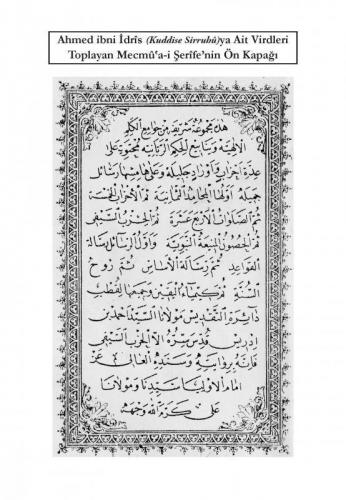 Ahmed ibni İdrîs (Kuddise Sirruhû)ya Ait Virdleri
Toplayan Mecmû‘a-i Şerîfe’nin Ön Kapağı
هذه مجموعة شريفة من جوامع الكلم
الالهية وينابيع الحكم الربانية محتوية على
عدة احزاب واوراد جليلة وعلى هامشها رسائل
جميلة اولها المحامد الثمانية ثم الاحزاب الخمسة
ثم الصلوات الاربع عشرة ثم الحزب السيفي
ثم الحصون المنيعة النبوية واول الرسائل رسالة
القواعد ثم رسالة الاساس ثم روح
السنة ثم كيمياء اليقين وجميعها لقطب
دائرة التقديس مولانا السيد احمد بن
ادريس قدس سره الا الحزب السيفي
فانه بروايته وسنده العالي عن
امام الاولياء سيدنا ومولانا
علي كرم الله وجهه